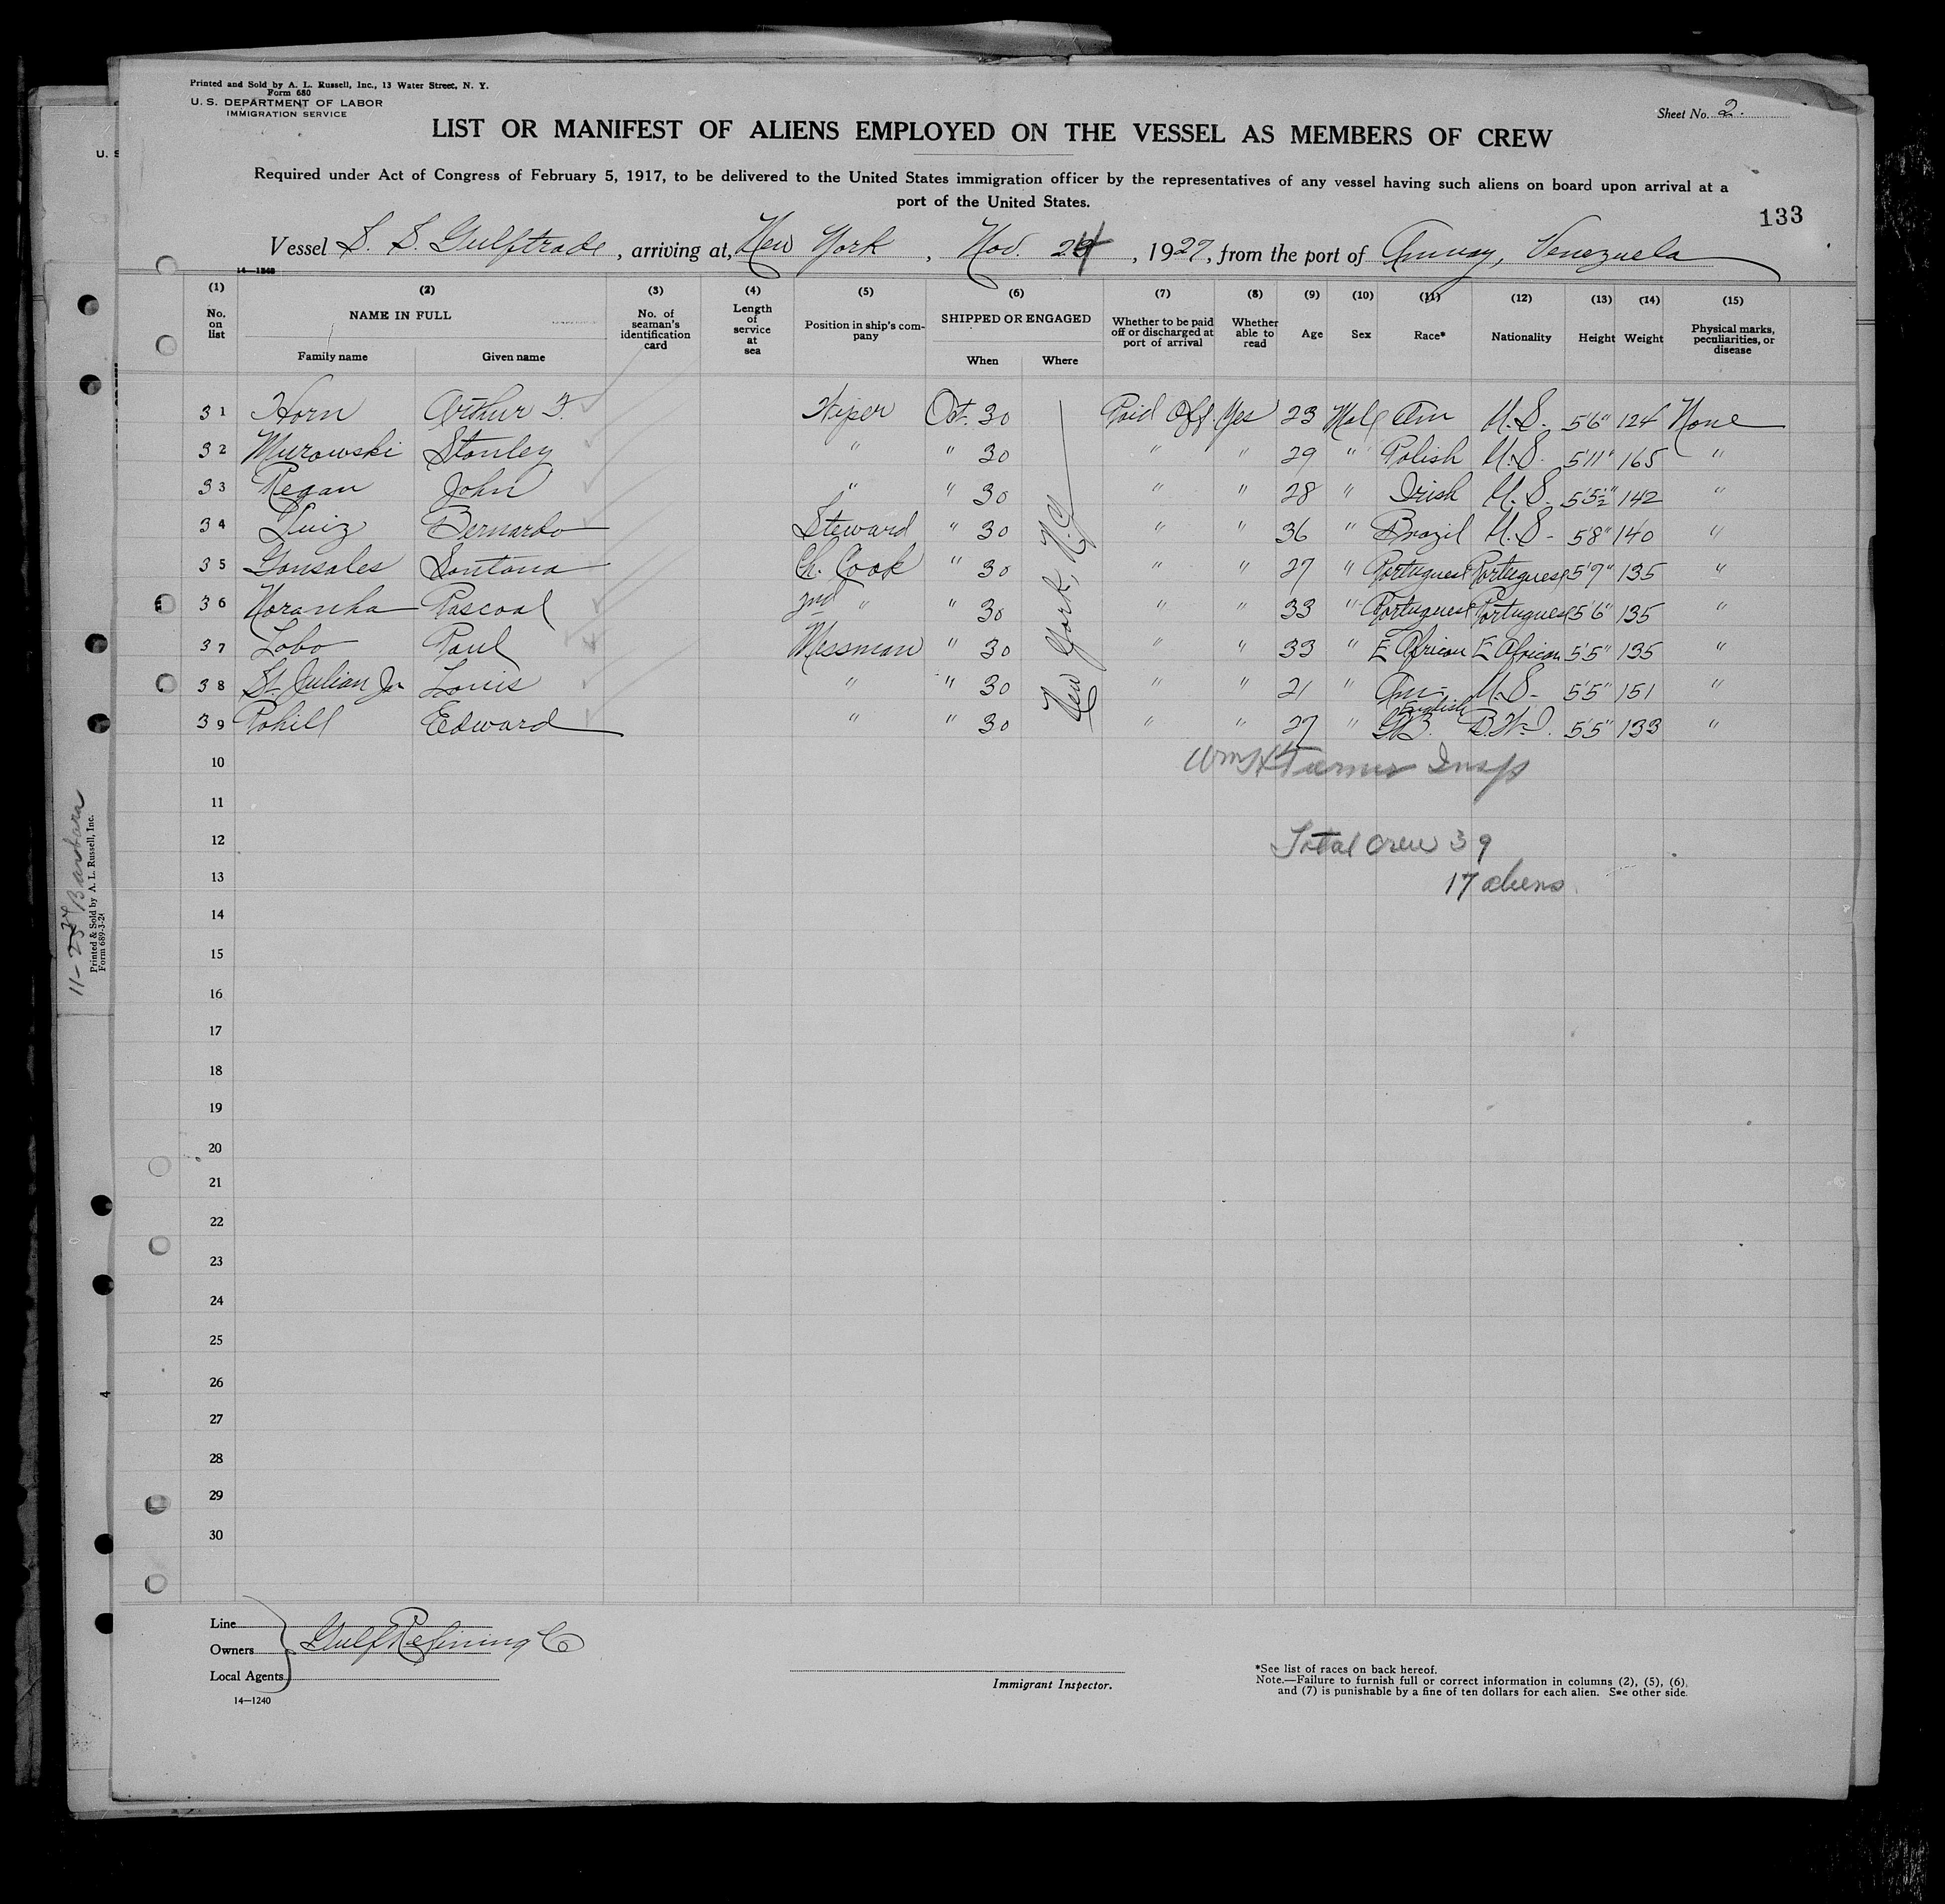 Printed and Sold by A. L. Russell, Inc., 13 Water Street, N. Y.
Form 680
U. S. DEPARTMENT OF LABOR
IMMIGRATION SERVICE
Sheet No. 2.
LIST OR MANIFEST OF ALIENS EMPLOYED ON THE VESSEL AS MEMBERS OF CREW
Required under Act of Congress of February 5, 1917, to be delivered to the United States immigration officer by the representatives of any vessel having such aliens on board upon arrival at a
port of the United States.
133
Vessel S. S. Gulftrade, arriving at, New York, Nov. 24, 1927, from the port of Amuay, Venezuela
14-1240
(1) (2) (3) (4) (5) (6) (7) (8) (9) (10) (11) (12) (13) (14) (15)
No. on list NAME IN FULL Family name Given name No. of seaman's identification card Length of service at sea Position in ship's company SHIPPED OR ENGAGED When Where Whether to be paid off or discharged at port of arrival Whether able to read Age Sex Race* Nationality Height Weight Physical marks, peculiarities, or disease
31 Horn Arthur F. Wiper Oct. 30 Paid Off Yes 23 Male Am U.S. 5'6" 124 None
32 Murowski Stanley " " 30 " " 29 " Polish U.S. 5'11" 165 "
33 Regan John " " 30 " " 28 " Irish U.S. 5'5½" 142 "
34 Luiz Bernardo Steward " 30 " " 36 " Brazil U.S. 5'8" 140 "
35 Gonsales Santana Ch. Cook " 30 " " 27 " Portuguese Portuguese 5'7" 135 "
36 Noranha Pascoal 2nd " " 30 " " 33 " Portuguese Portuguese 5'6" 135 "
37 Lobo Paul Messman " 30 " " 33 " E African E African 5'5" 135 "
38 St. Julian Jr Louis " " 30 " " 21 " Am- U.S- 5'5" 151 "
39 Pohill Edward " " 30 " " 27 " English B.W.I. 5'5" 133 "
New York, N.Y.
10
Wm H Turner Insp
11
12
Total Crew 39
13
17 aliens
14
15
16
17
18
19
20
21
22
23
24
25
26
27
28
29
30
Line
Owners Gulf Refining Co
Local Agents
14—1240
Immigrant Inspector.
*See list of races on back hereof.
Note.—Failure to furnish full or correct information in columns (2), (5), (6),
and (7) is punishable by a fine of ten dollars for each alien. See other side.
Barbara
Printed & Sold by A. L. Russell, Inc.
Form 689-3-24
U. S
4